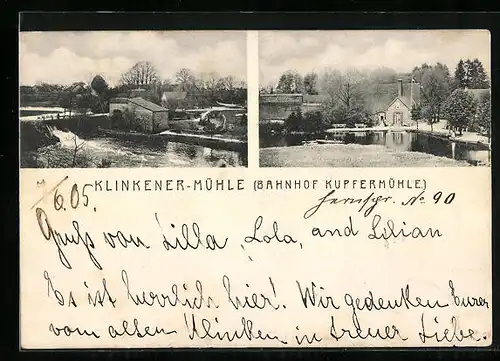 7/6.05.
KLINKENER-MÜHLE (BAHNHOF KUPFERMÜHLE)
Fernspr. No 90
Gruß von Lilla, Lola, and Lilian
Es ist herrlich hier! Wir gedenken Eurer
vom alten Klinken in treuer Liebe.